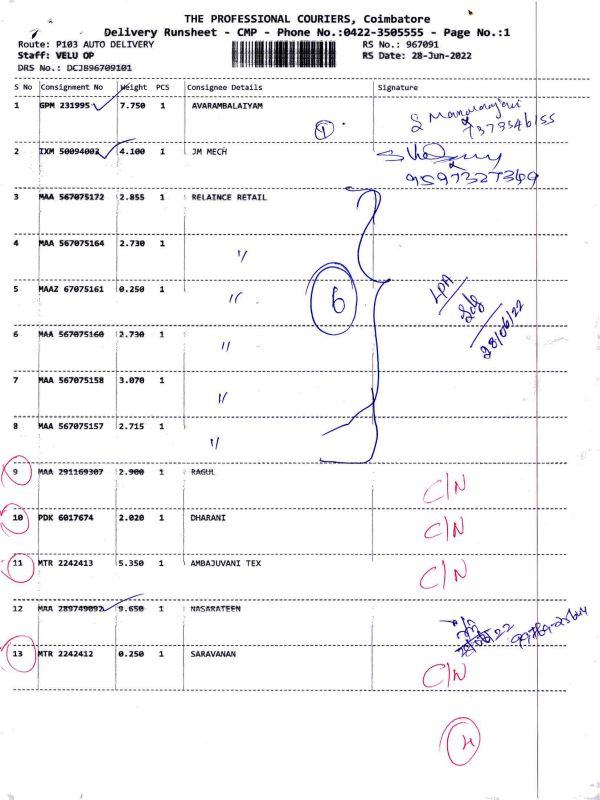 THE PROFESSIONAL COURIERS, Coimbatore
Delivery Runsheet - CMP - Phone No.:0422-3505555 - Page No.:1
Route: P103 AUTO DELIVERY RS No.: 967091
Staff: VELU OP RS Date: 28-Jun-2022
DRS No.: DCJB96709101
S No Consignment No Weight PCS Consignee Details Signature
1 GPM 231995 7.750 1 AVARAMBALAIYAM
1
7373546155
2 IXM 50094002 4.100 1 JM MECH
9597327349
3 MAA 567075172 2.855 1 RELAINCE RETAIL
4 MAA 567075164 2.730 1 "
5 MAAZ 67075161 0.250 1 "
6
28/06/22
6 MAA 567075160 2.730 1 "
7 MAA 567075158 3.070 1 "
8 MAA 567075157 2.715 1 "
9 MAA 291169307 2.900 1 RAGUL C/N
10 PDK 6017674 2.020 1 DHARANI C/N
11 MTR 2242413 5.350 1 AMBAJUVANI TEX C/N
12 MAA 289749092 9.650 1 NASARATEEN
28/06/22
13 MTR 2242412 0.250 1 SARAVANAN C/N
4